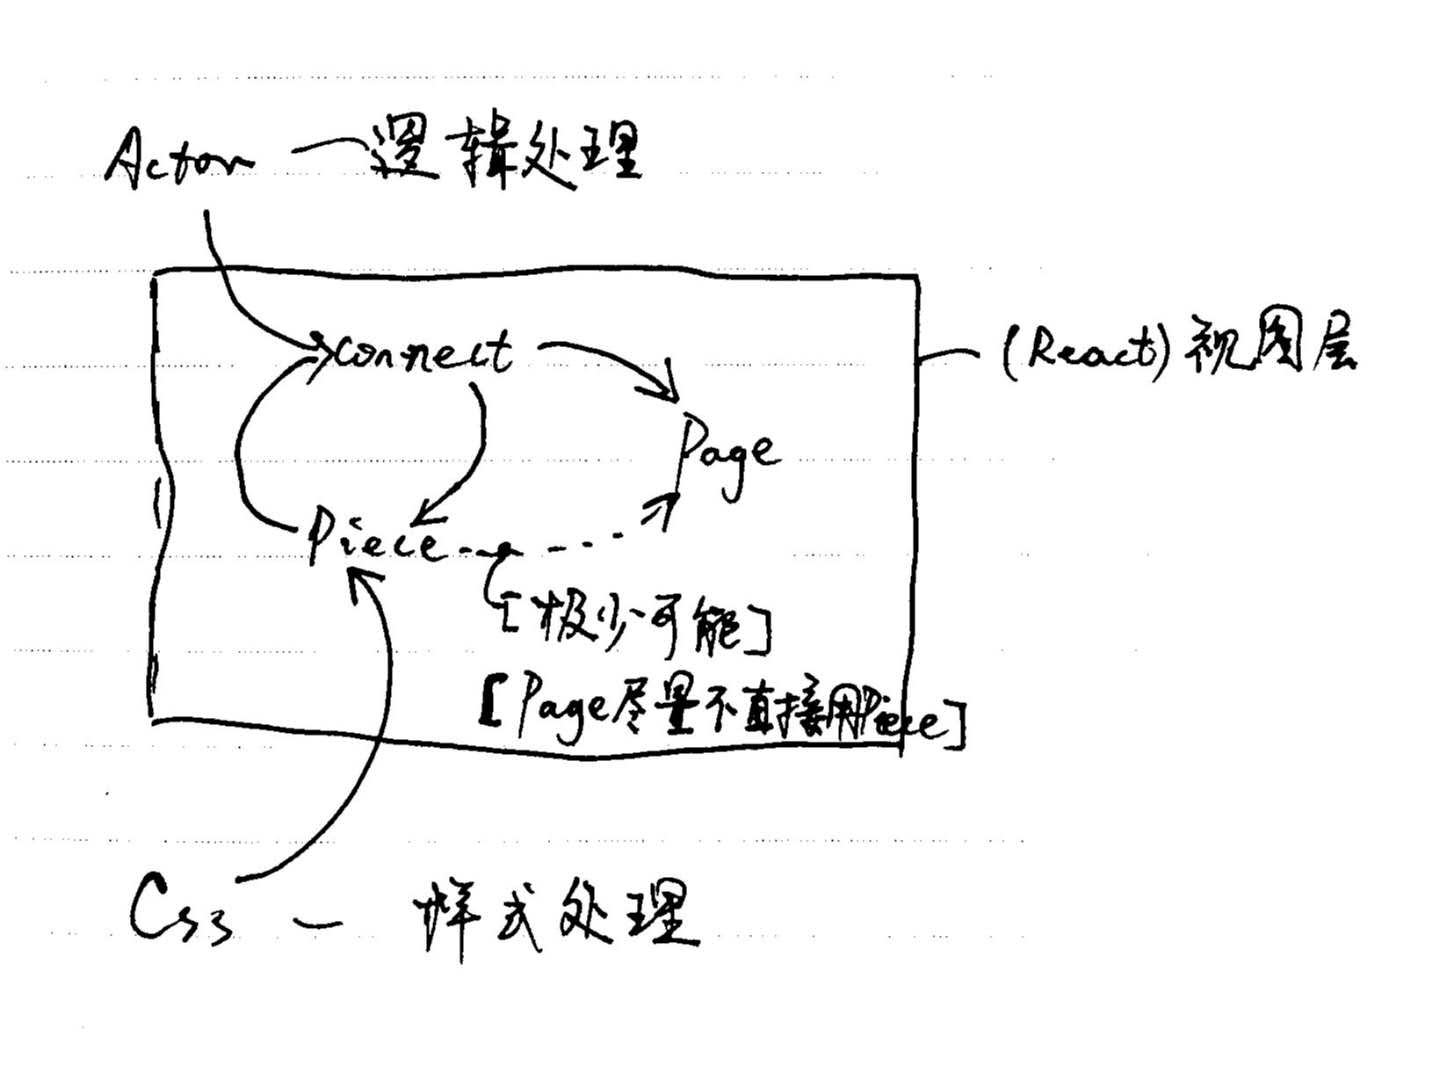 Actor — 逻辑处理
connect
(React) 视图层
Page
Piece
[极少可能]
[Page尽量不直接用Piece]
Css — 样式处理